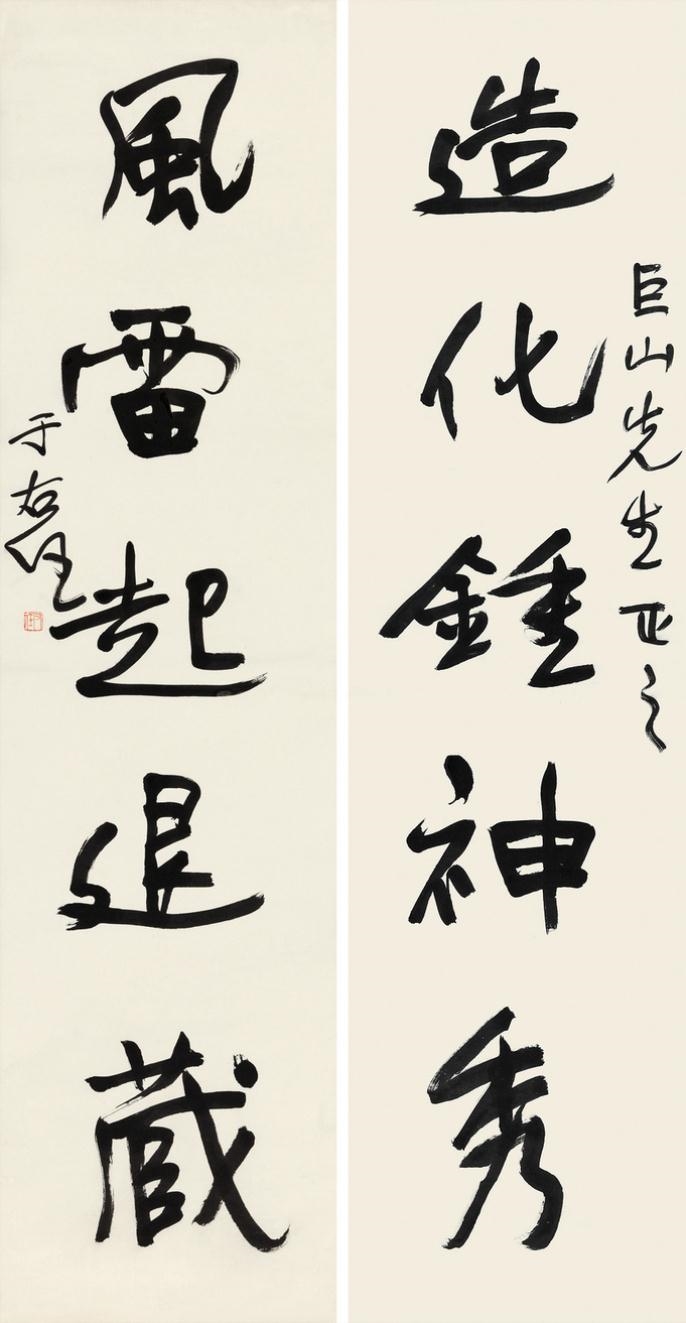 巨山先生正之
造化鍾神秀
風雷起退藏
于右任